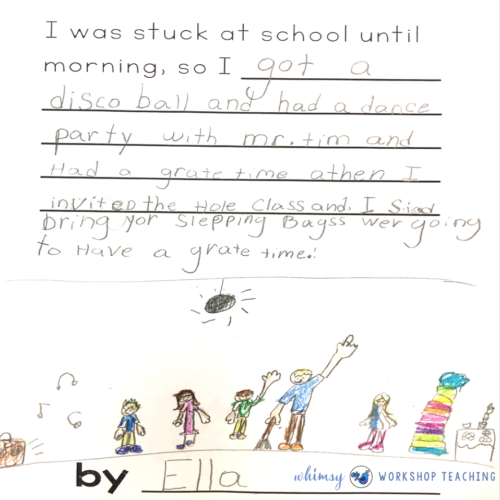 I was stuck at school until
morning, so I got a
disco ball and y had a dance
party with mr. tim and
Had a grate time athen I
invited the Hole Class and. I Sied
bring yor Slepping Bagss wer going
to Have a grate time.
by Ella
whimsy WORKSHOP TEACHING